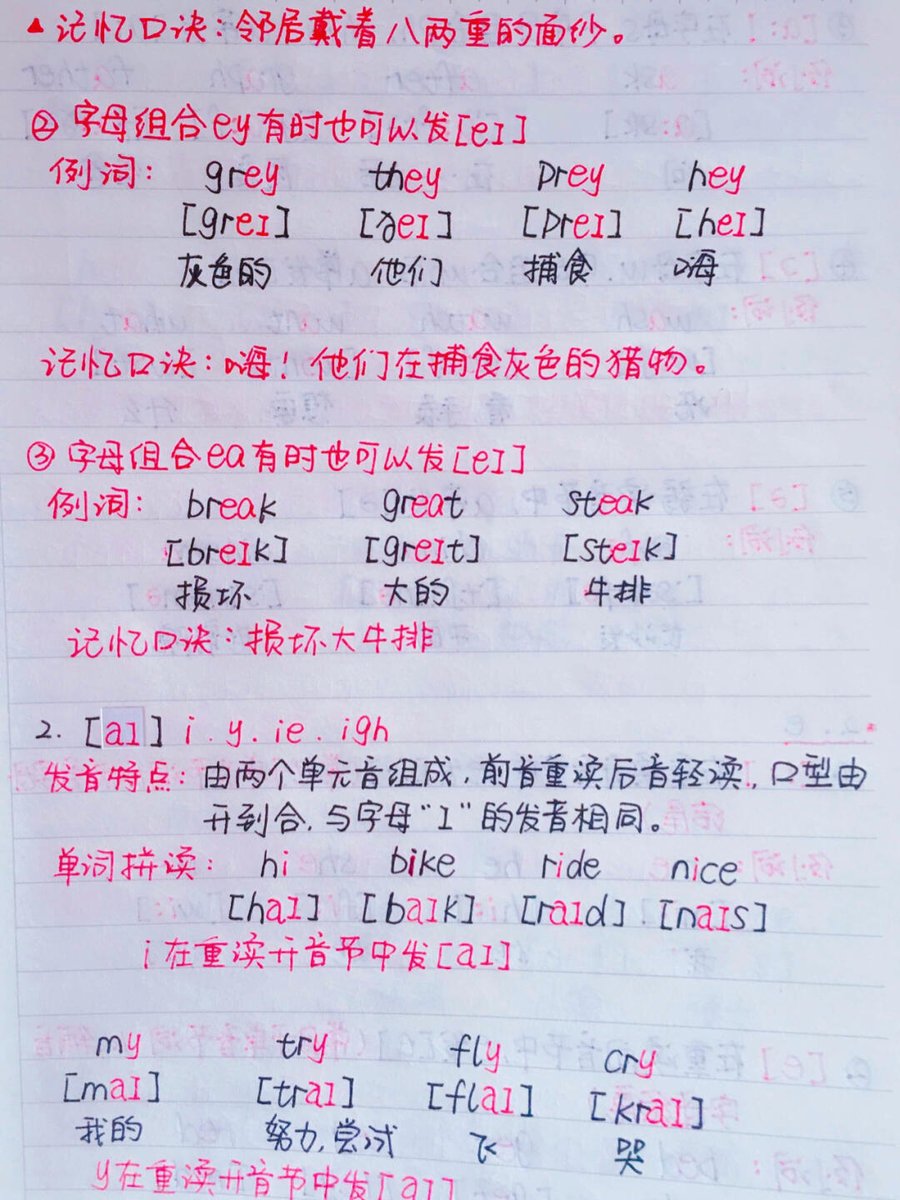 ▲记忆口诀：邻居戴着八两重的面纱。
② 字母组合ey有时也可以发[eɪ]
例词： grey they prey hey
[greɪ] [ðeɪ] [preɪ] [heɪ]
灰色的 他们 捕食 嗨
记忆口诀：嗨！他们在捕食灰色的猎物。
③ 字母组合ea有时也可以发[eɪ]
例词： break great steak
[breɪk] [greɪt] [steɪk]
损坏 大的 牛排
记忆口诀：损坏大牛排
2. [aɪ] i . y . ie . igh
发音特点：由两个单元音组成，前音重读后音轻读，口型由
开到合，与字母“I”的发音相同。
单词拼读： hi bike ride nice
[haɪ] [baɪk] [raɪd] [naɪs]
i在重读开音节中发[aɪ]
my try fly cry
[maɪ] [traɪ] [flaɪ] [kraɪ]
我的 努力，尝试 飞 哭
y在重读开音节中发[aɪ]